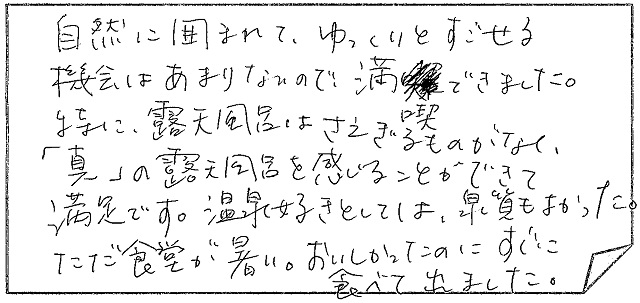 自然に囲まれて、ゆっくりとすごせる
機会はあまりないので満喫できました。
特に、露天風呂はさえぎるものがなく、
「真」の露天風呂を感じることができて
満足です。温泉好きとしては、泉質もよかった。
ただ食堂が暑い。おいしかったのにすぐに
食べて出ました。